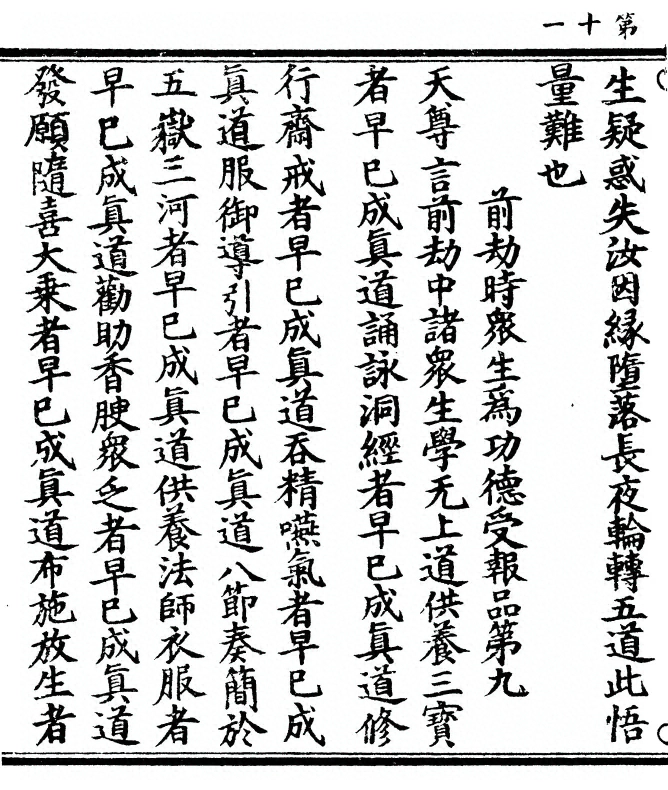 第十一
生疑惑失汝因緣墮落長夜輪轉五道此悟
量難也
前劫時衆生爲功德受報品第九
天尊言前劫中諸衆生學无上道供養三寶
者早已成眞道誦詠洞經者早已成眞道修
行齋戒者早已成眞道吞精嚥氣者早已成
眞道服御導引者早已成眞道八節奏簡於
五嶽三河者早已成眞道供養法師衣服者
早已成眞道勸助香腴衆乏者早已成眞道
發願隨喜大乗者早已成眞道布施放生者